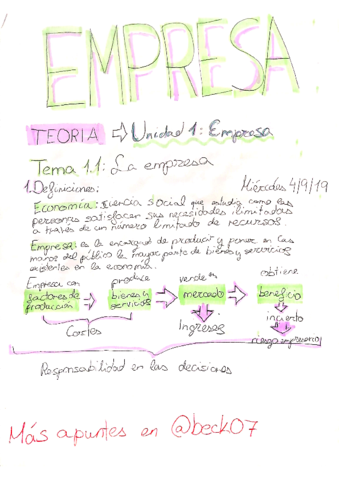 EMPRESA
TEORIA ⇒ Unidad 1: Empresa
Tema 1.1: La empresa
1. Definiciones: Miércoles 4/9/19
Economía: ciencia social que estudia como las
personas satisfacer sus necesidades ilimitadas
a través de un número limitado de recursos.
Empresa: es la encargada de producir y poner en las
manos del público la mayor parte de bienes y servicios
existentes en la economía.
Empresa con produce vende obtiene
factores de producción → bienes y servicios → mercado → beneficio
Costes Ingresos incierto
riesgo empresarial
Responsabilidad en las decisiones
Más apuntes en @beck07